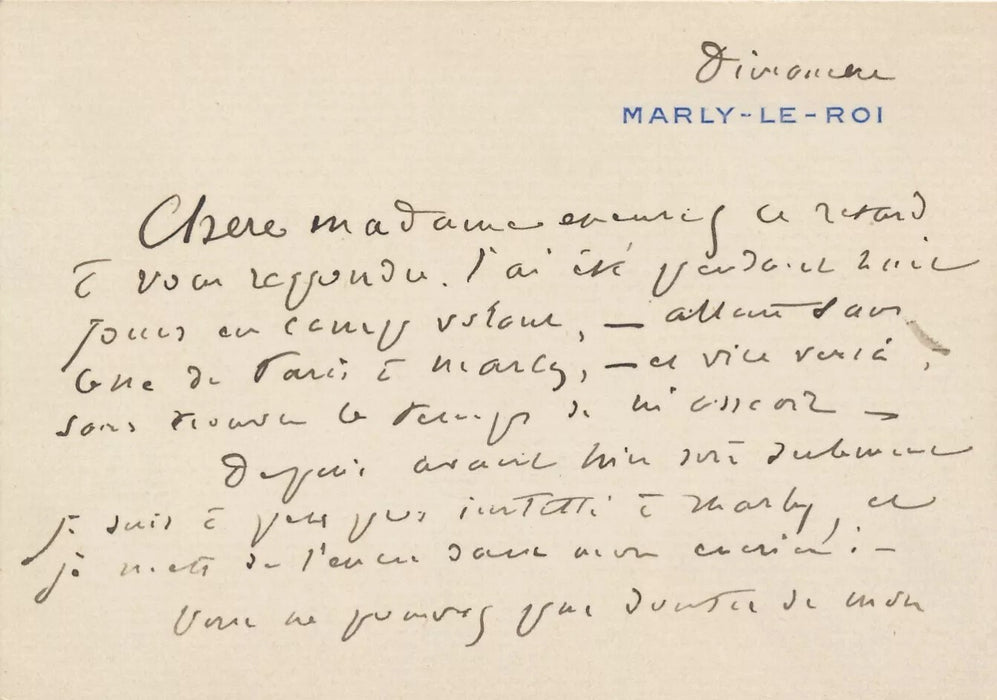 Dimanche
MARLY-LE-ROI
Chere madame excusez ce retard
à vous repondre. J'ai été pendant huit
jours en camp volant, — allant sans
cesse de Paris à Marly, — et vice versà,
sans trouver le temps de m'asseoir —
Depuis avant hier soir seulement
je suis à peu pres installé à Marly, et
je mets de l'encre dans mon encrier : —
Vous ne pouvez pas douter de mon